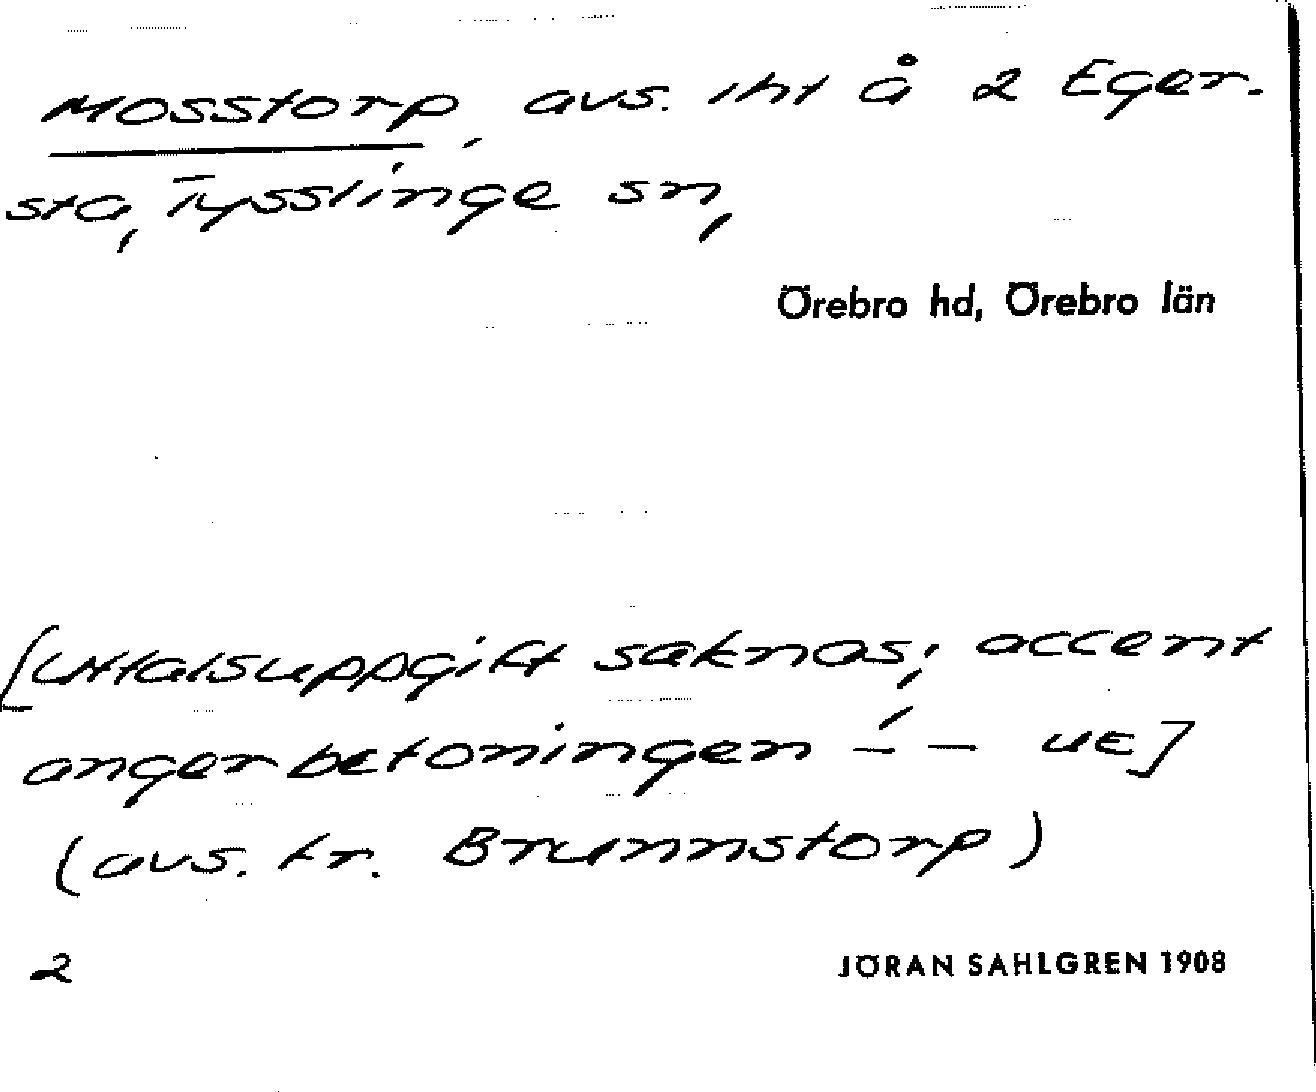 Mosstorp, avs. lht å 2 Eger-
sta, Tysslinge sn,
Örebro hd, Örebro län
[Uttalsuppgift saknas; accent
anger betoningen –́ – UE]
(avs. fr. Brunnstorp)
2
JÖRAN SAHLGREN 1908